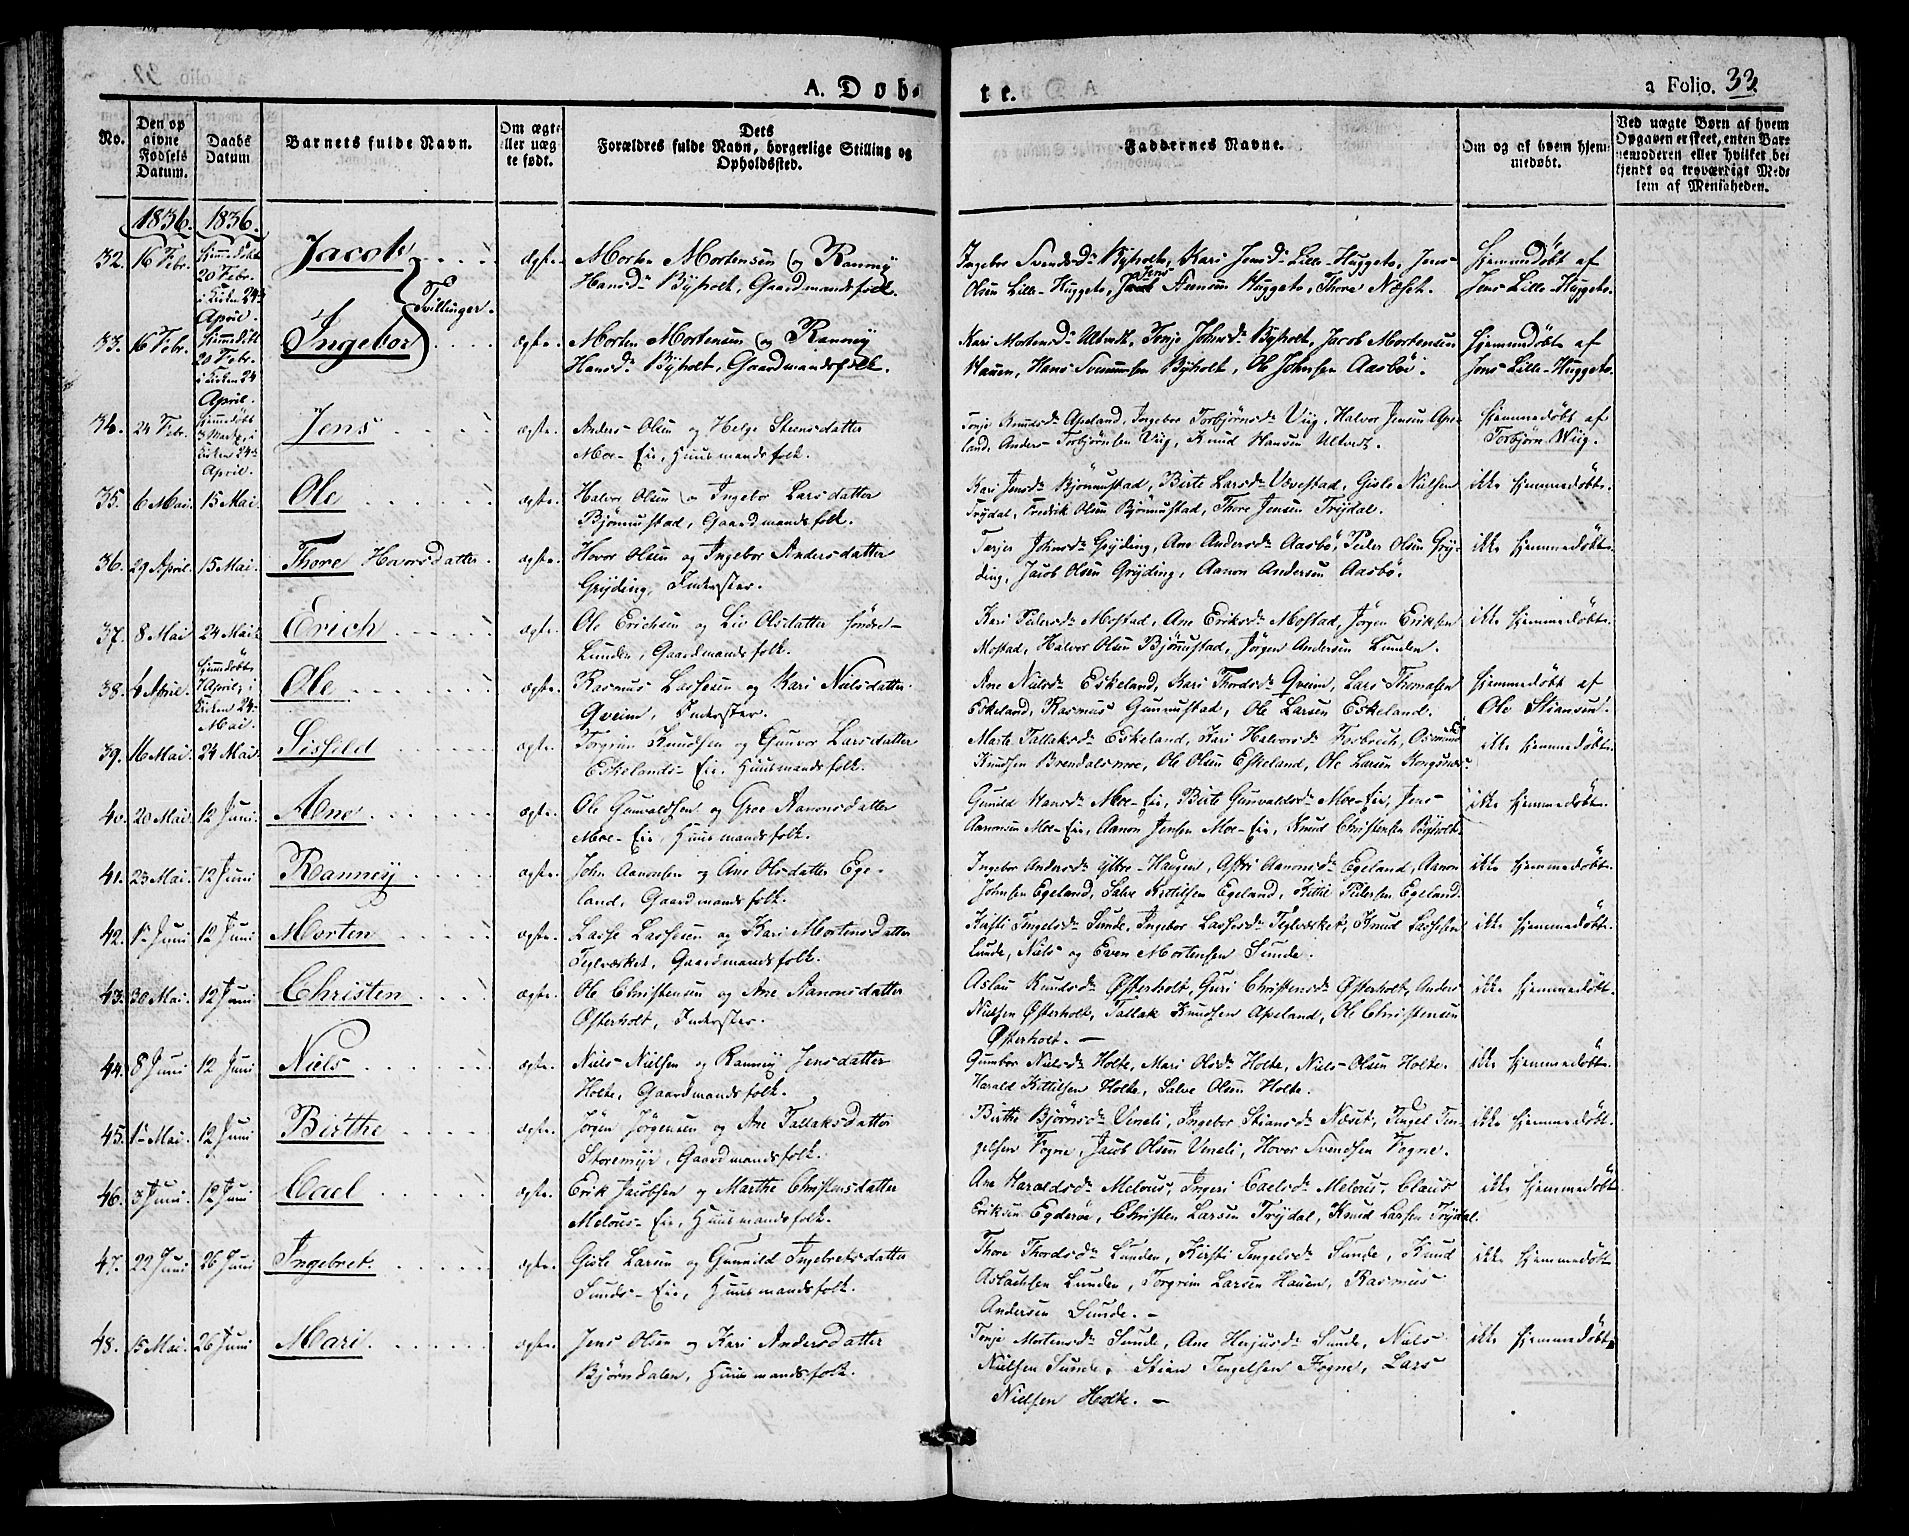 A. Døb-
te.
a Folio. 33.
No.
Den op
givne
Fødsels
Datum.
Daabs
Datum
Barnets fulde Navn.
Om ægte
eller uæg
te født.
Dets
Forældres fulde Navn, borgerlige Stilling og
Opholdssted.
Faddernes Navne.
Om og af hvem hjem
medøbt.
Ved uægte Børn af hvem
Opgaven er skeet, enten Bar
nemoderen eller hvilket be
kjendt og troværdigt Med-
lem af Menigheden.
1836. 1836.
32. 16 Febr. hjemedøbt 20 Febr. i Kirken 24de April. Jacob ægte. Morten Mortensen og Rannöy
Hansdr Byholt, Gaardmandsfolk.
Ingebor Svendsdr Byholt, Kari Jensdr Lille-Huggeto, Jens
Olsen Lille-Huggeto, Jens Huggeto, Thore Næset.
hjemmedøbt af
Jens Lille-Huggeto.
Tvillinger.
33. 16 Febr. hjemedøbt 20 Febr. i Kirken 24 April. Ingebor ægte. Morten Mortensen og Rannöy
Hansdr Byholt, Gaardmandsfolk.
Kari Mortensdr Ultvedt, Tonje Johnsdr Byholt, Jacob Mortensen
Hauen, Hans Byholt, Ole Johnsen Aasbö.
hjemmedøbt af
Jens Lille-Huggeto.
34. 24 Febr. hjemedøbt 3 Marts, i Kirken 24de April. Jens ægte. Anders Olsen og Helge Steensdatter
Moe-Eie, Huusmandsfolk.
Tonje Knudsdr Apeland, Ingebor Torbjørnsdr Viig, Halvor Jensen Ape-
land, Anders Torbjørnsen Viig, Knud Hansen Ultvedt.
hjemmedøbt af
Torbjørn Wiig.
35. 6 Mai. 15 Mai. Ole ægte. Halvor Olsen og Ingebor Larsdatter
Bjönnustad, Gaardmandsfolk.
Kari Jensdr Bjönnustad, Birte Larsdr Uvestad, Gisle Nielsen
Trydal, Fredrik Olsen Bjönnustad, Thore Jensen Trydal.
ikke hjemmedøbt.
36. 29 April. 15 Mai. Thore Hovorsdatter. ægte. Hovor Olsen og Ingebor Andersdatter
Gryding, Inderster.
Tarjer Johnsdr Gryding, Ane Andersdr Aasbö, Peder Olsen Gry-
ding, Jacob Olsen Gryding, Aanon Andersen Aasbö.
ikke hjemmedøbt.
37. 8 Mai 24 Mai. Erich ægte. Ole Erichsen og Liv Olsdatter söndre-
Lunden, Gaardmandsfolk.
Kari Pedersdr Mostad, Ane Eriksdr Mostad, Jörgen Eriksen
Mostad, Halvor Olsen Bjönnustad, Jörgen Andersen Lunden.
ikke hjemmedøbt.
38. 4 April. hjemedøbt 7 April, i Kirken 24 Mai. Ole ægte. Rasmus Lassesen og Kari Nielsdatter
Qveim, Inderster.
Ane Nielsdr Eskeland, Kari Thordsdr Qveim, Lars Thomasen
Eskeland, Rasmus Gunnustad, Ole Larsen Eskeland.
hjemmedøbt af
Ole Stiansen.
39. 16 Mai. 24 Mai. Sisseld ægte. Torgrim Knudsen og Gunvor Larsdatter
Eskelands-Eie, Huusmandsfolk.
Marte Tallaksdr Eskeland, Kari Halvorsdr Fosbræk, Osmund
Knudsen Brendalsmoe, Ole Olsen Eskeland, Ole Larsen Kongsnæs.
ikke hjemmedøbt.
40. 20 Mai 12 Juni. Ane ægte. Ole Gunvaldsen og Groe Aanonsdatter
Moe-Eie, Huusmandsfolk.
Gunild Hansdr Moe-Eie, Birte Gunvaldsdr Moe-Eie, Jens
Aanonsen Moe-Eie, Aanon Jensen Moe-Eie, Knud Christensen Byholt.
ikke hjemmedøbt.
41. 23 Mai. 12 Juni Rannöy ægte. John Aanonsen og Ane Olsdatter Ege-
land, Gaardmandsfolk.
Ingebor Andersdr ytre-Haugen, Astri Aanonsdr Egeland, Aanon
Johnsen Egeland, Salve Kettilsen Egeland, Kittil Pedersen Egeland.
ikke hjemmedøbt.
42. 1te Juni 12 Juni Morten ægte. Lasse Lassesen og Kari Mortensdatter
Teglværket, Gaardmandsfolk.
Kisti Tengelsdr Sunde, Ingebor Lassesdr Teglværket, Knud Lassesen
Lunde, Niels og Even Mortensen Sunde.
ikke hjemmedøbt.
43. 30 Mai. 12 Juni Christen ægte. Ole Christensen og Ane Aanonsdatter
Østerholt, Inderster.
Aslau Knudsdr Østerholt, Guri Christensdr Østerholt, Anders
Nielsen Østerholt, Tallak Knudsen Apeland, Ole Christensen
Østerholt. —
ikke hjemmedøbt.
44. 8 Juni 12 Juni Niels ægte. Niels Nielsen og Rannöy Jensdatter
Holte, Gaardmandsfolk.
Gunbor Nielsdr Holte, Mari Olsdr Holte, Niels Olsen Holte.
Harald Kittilsen Holte, Salve Olsen Holte.
ikke hjemmedøbt.
45. 1te Mai. 12 Juni Birthe ægte. Jørgen Jørgensen og Ane Tallaksdatter
Storemyr, Gaardmandsfolk.
Birthe Bjørnsdr Veneli, Ingebor Stiansdr Næset, Tengel Ten-
gelsen Fogne, Jacob Olsen Veneli, Hovor Svendsen Fogne.
ikke hjemmedøbt.
46. 3 Juni. 12 Juni Cael ægte. Erik Jacobsen og Marthe Christensdatter
Melaas-Eie, Huusmandsfolk.
Ane Haraldsdr Melaas, Ingeri Caelsdr Melaas, Claus
Eriksen Egderöe, Christen Larsen Trydal, Knud Larsen Trydal.
ikke hjemmedøbt.
47. 22 Juni 26 Juni Ingebret ægte. Gisle Larsen og Gunnild Ingebretsdatter
Sunds-Eie, Huusmandsfolk.
Thore Thordsdr Lunden, Kirsti Tengelsdr Sunde, Knud
Aslachsen Lunden, Torgrim Larsen Hauen, Rasmus
Andersen Sunde. —
ikke hjemmedøbt
48. 15 Mai. 26 Juni Mari ægte. Jens Olsen og Kari Andersdatter
Bjørndalen, Huusmandsfolk.
Tonje Mortensdr Sunde, Ane Sunde, Niels
Nielsen Sunde, Stian Tengelsen Fogne, Lars
Nielsen Holte. —
ikke hjemmedøbt.